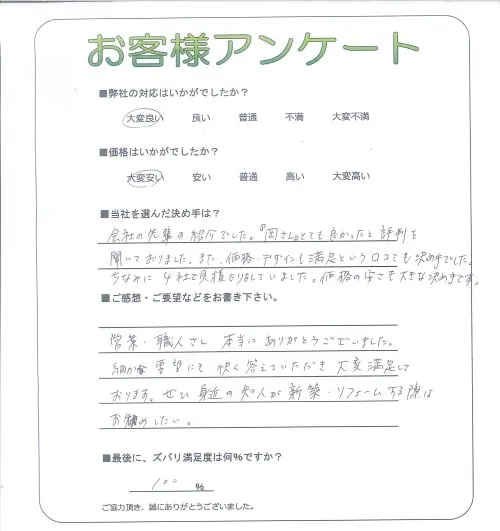 お客様アンケート
■弊社の対応はいかがでしたか？
大変良い 良い 普通 不満 大変不満
■価格はいかがでしたか？
大変安い 安い 普通 高い 大変高い
■当社を選んだ決め手は？
会社の先輩の紹介でした。『岡さん』とても良かったと評判を
聞いておりました。また、価格・デザインも満足という口コミも決め手でした。
ちなみに 4社で見積かりをしていました。価格の安さも大きな決め手です。
■ご感想・ご要望などをお書き下さい。
営業・職人さん 本当に ありがとうございました。
細かな 要望にも 快く 答えていただき 大変 満足して
おります。ぜひ 身近の 知人が 新築・リフォームする際は
お勧めしたい。
■最後に、ズバリ満足度は何％ですか？
100 ％
ご協力頂き、誠にありがとうございました。